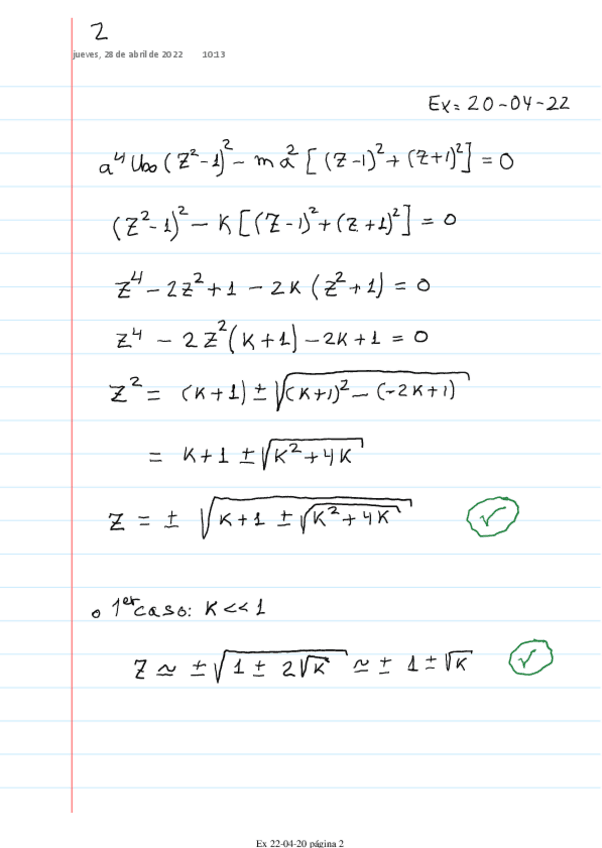 2
jueves, 28 de abril de 2022 10:13
Ex: 20-04-22
a⁴ Uoo (z²-1)² - m a² [(z-1)² + (z+1)²] = 0
(z²-1)² - K [(z-1)² + (z+1)²] = 0
z⁴ - 2z² + 1 - 2K (z²+1) = 0
z⁴ - 2z² (K+1) - 2K + 1 = 0
z² = (K+1) ± √((K+1)² - (-2K+1))
= K+1 ± √(K²+4K)
z = ± √(K+1 ± √(K²+4K)) ✓
o 1er caso: K << 1
z ≃ ± √(1 ± 2√K) ≃ ± 1 ± √K ✓
Ex 22-04-20 página 2